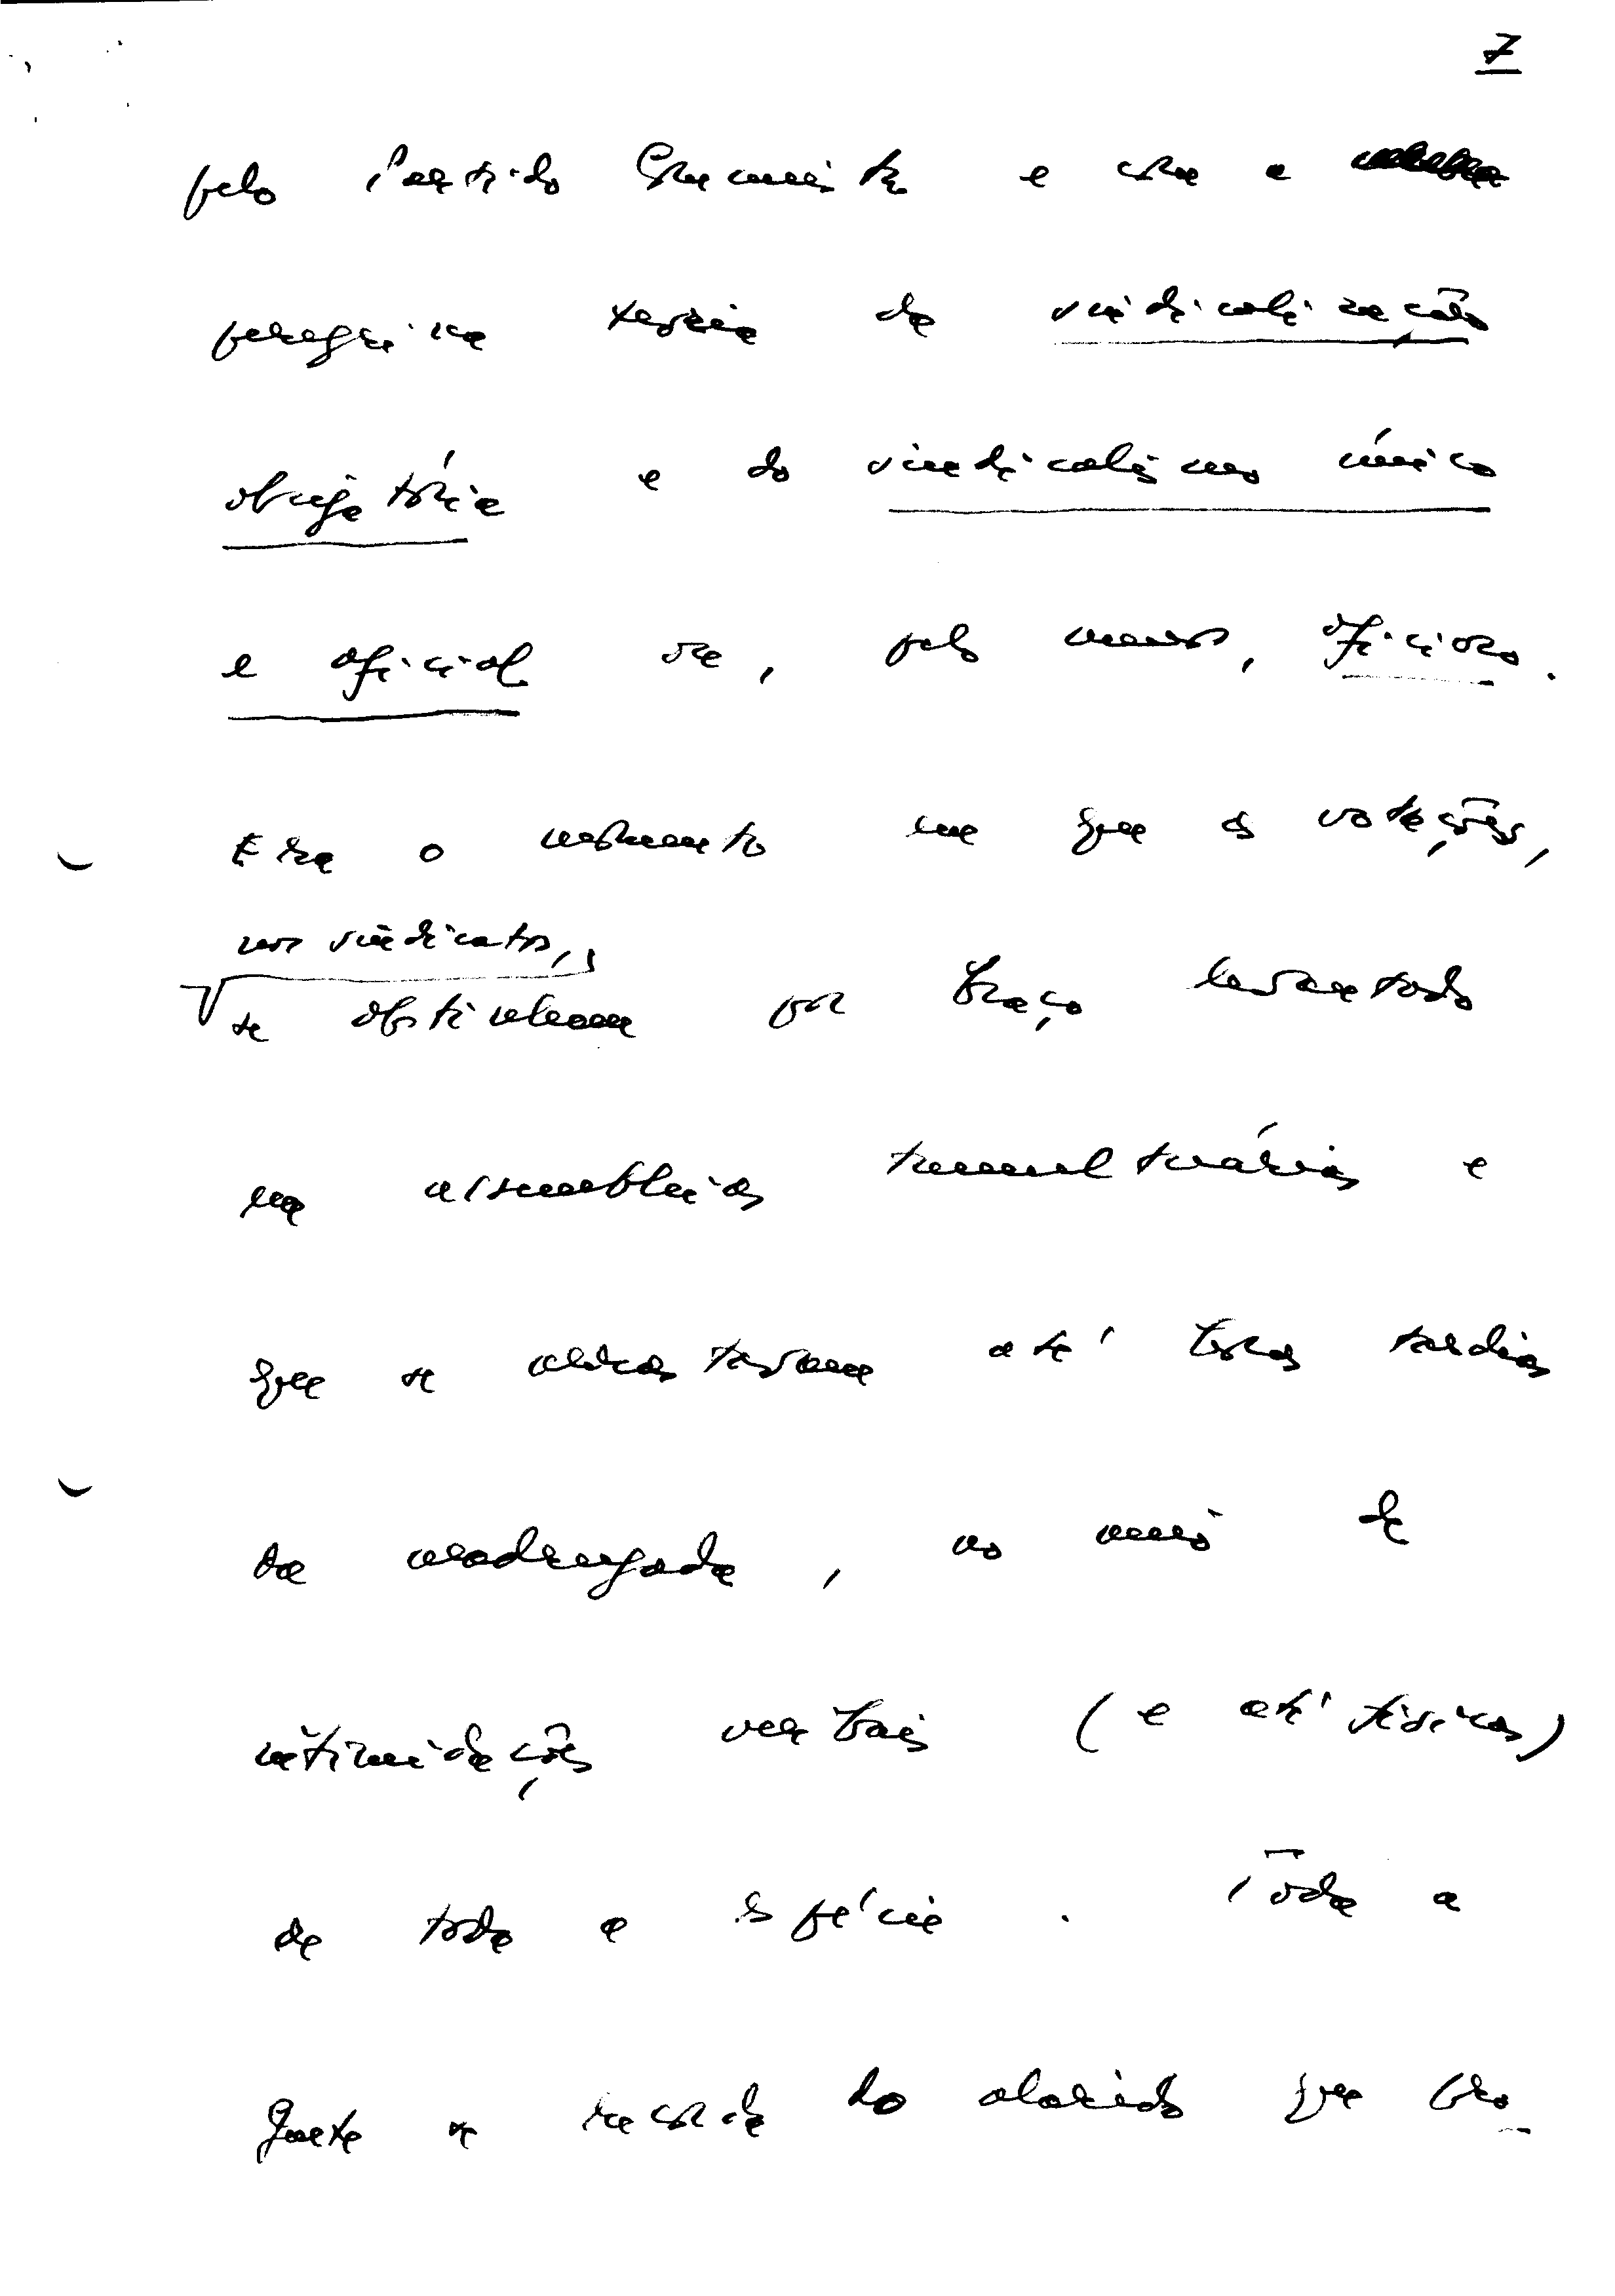 7
pelo Partido Comunista e com a
peregrina teoria da sindicalização
obrigatória e do sindicalismo único
e oficial ou, pelo menos, oficioso.
Era o momento em que as votações,
nos sindicatos,
se obtinham por braço levantado
em assembleias tumultuárias e
que se arrastavam até horas tardias
da madrugada, no meio de
intimidações verbais (e até físicas)
de toda a espécie. Toda a
gente se recorda do alarido que pro-